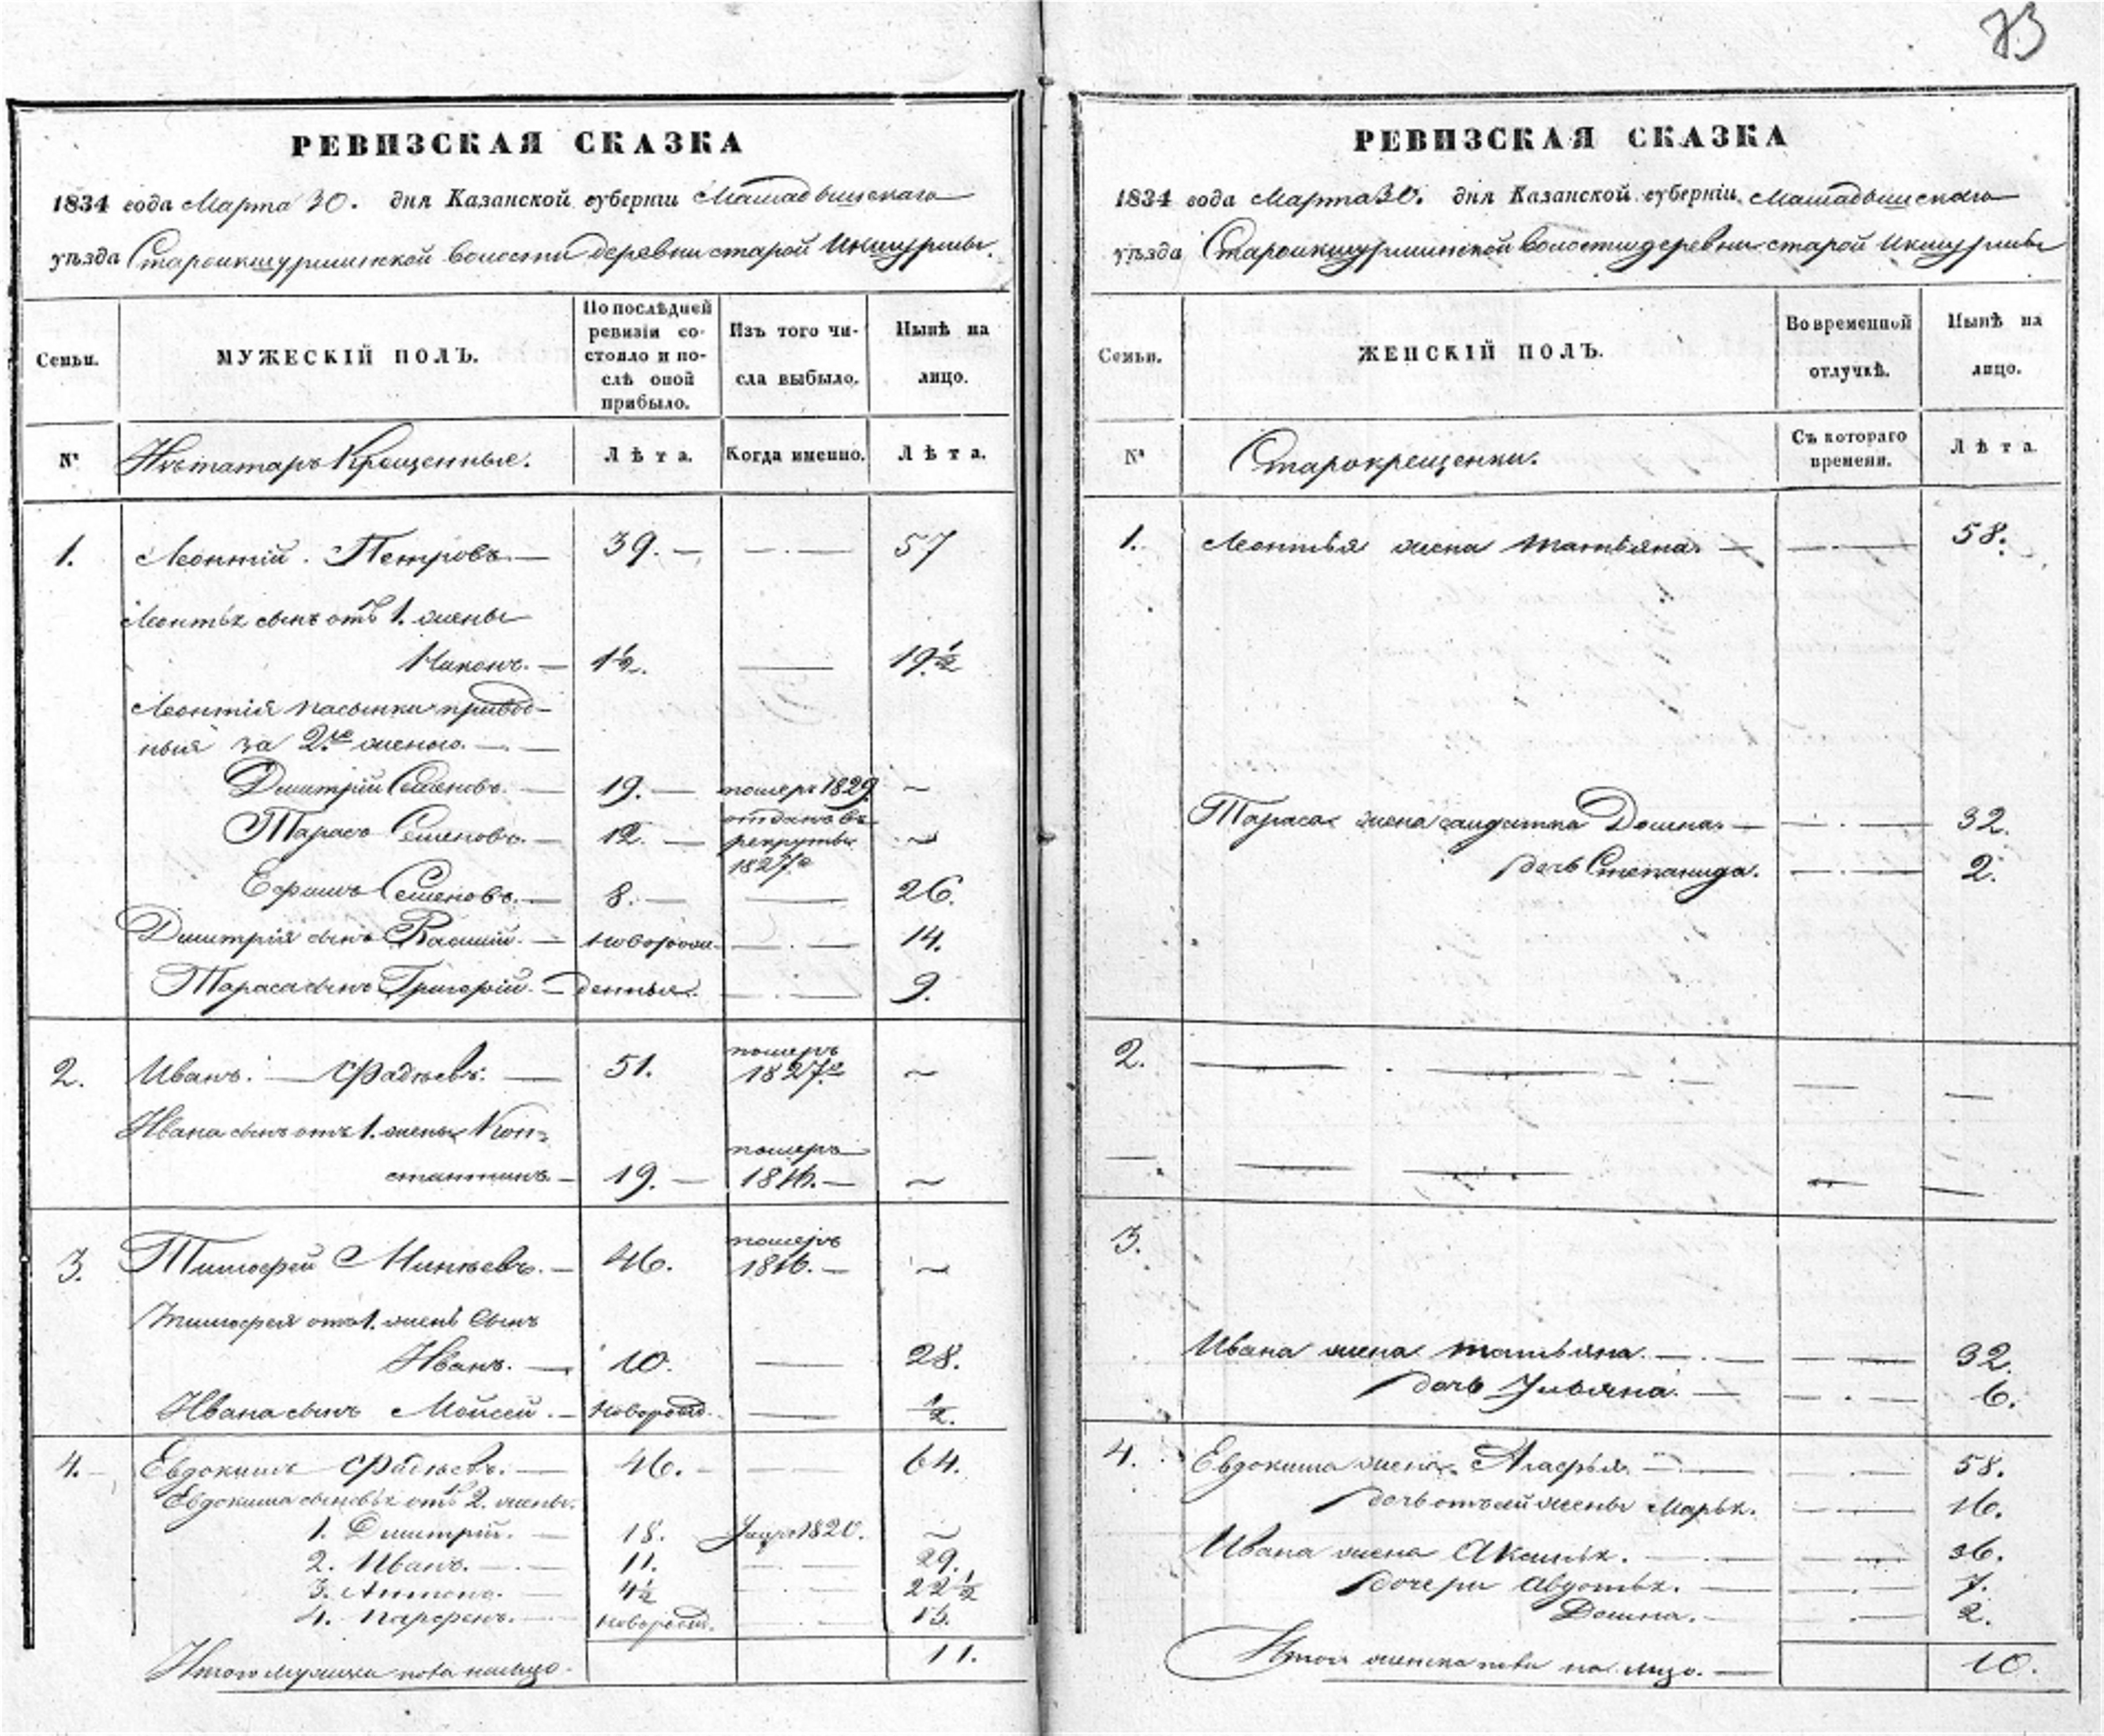 73
РЕВИЗСКАЯ СКАЗКА
1834 года Марта 30. дня Казанской губерніи Мамадышскаго
уѣзда Староикшурминской волости деревни старой Икшурмы.
Семьи.
МУЖЕСКІЙ ПОЛЪ.
По послѣдней
ревизіи со-
стояло и по-
слѣ оной
прибыло.
Изъ того чи-
сла выбыло.
Нынѣ на
лицо.
№
Изъ татаръ Крещенные.
Лѣта.
Когда именно.
Лѣта.
1. Леонтій Петровъ. 39. 57
Леонтья сынъ отъ 1. жены
Никонъ. 1½. 19½
Леонтія пасынки привод-
ныя за 2ю женою.
Дмитрій Семеновъ. 19. померъ 1829
Тарасъ Семеновъ. 12. отданъ въ
рекруты
1827го
Ефимъ Семеновъ. 8. 26.
Дмитрія сынъ Василій. новорож- 14.
Тараса сынъ Григорій. денныя. 9.
2. Иванъ. Фадѣевъ. 51. померъ
1827го
Ивана сынъ отъ 1. жены Кон-
стантинъ. 19. померъ
1816.
3. Тимофей Минѣевъ. 46. померъ
1816.
Тимофея отъ 1. жены сынъ
Иванъ. 10. 28.
Ивана сынъ Мойсей. новорожд. ½.
4. Евдокимъ Фадѣевъ. 46. 64.
Евдокима сыновья отъ 2. жены.
1. Дмитрій. 18. умре 1820.
2. Иванъ. 11. 29.
3. Антонъ. 4½ 22½
4. Парфенъ. новорожд. 13.
Итого мужска пола на лицо. 11.
РЕВИЗСКАЯ СКАЗКА
1834 года Марта 30. дня Казанской губерніи Мамадышскаго
уѣзда Староикшурминской волости деревни старой Икшурмы
Семьи.
ЖЕНСКІЙ ПОЛЪ.
Во временной
отлучкѣ.
Нынѣ на
лицо.
№
Старокрещенки.
Съ котораго
времени.
Лѣта.
1. Леонтья жена Татьяна. 58.
Тараса жена салдатка Домна. 32.
дочь Степанида. 2.
2.
3.
Ивана жена Татьяна. 32.
дочь Ульяна. 6.
4. Евдокима жена Агафья. 58.
дочь отъ ей жены Марья. 16.
Ивана жена Акилина. 36.
дочери Авдотья. 7.
Домна. 2.
Итого женска пола на лицо. 10.